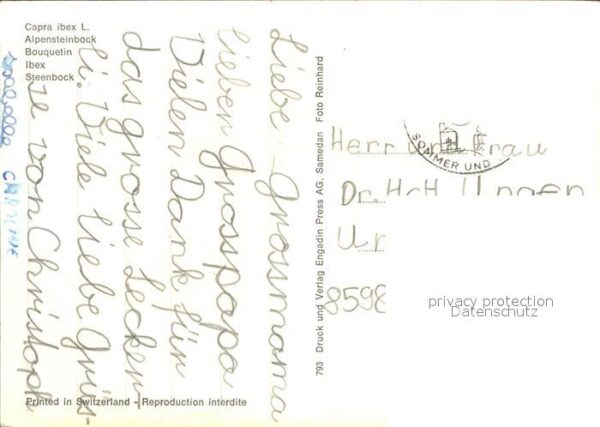 Capra ibex L.
Alpensteinbock
Bouquetin
Ibex
Steenbock
Liebe Grosmama
lieben Grosspapa
Vielen Dank für
das grosse Lecker
li. Viele liebe Grüs-
se von Christoph
793 Druck und Verlag Engadin Press AG, Samedan Foto Reinhard
SOMMER UND
Herr und Frau
Dr. H.
8598
privacy protection
Datenschutz
Printed in Switzerland - Reproduction interdite